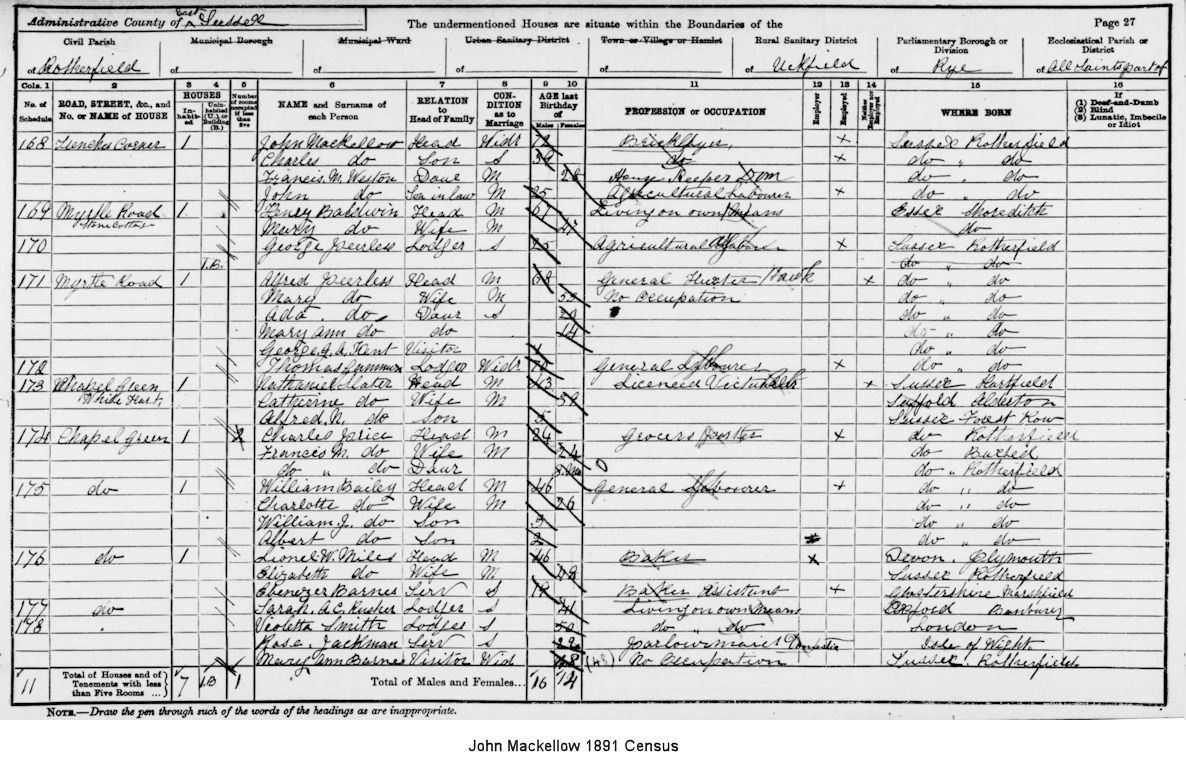 Administrative County of East Sussex
The undermentioned Houses are situate within the Boundaries of the
Page 27
Civil Parish Municipal Borough Municipal Ward Urban Sanitary District Town or Village or Hamlet Rural Sanitary District Parliamentary Borough or Division Ecclesiastical Parish or District
of Rotherfield of of of of of Uckfield of Rye of All Saints part of
Cols. 1 2 3 4 5 6 7 8 9 10 11 12 13 14 15 16
No. of Schedule ROAD, STREET, &c., and No. or NAME of HOUSE HOUSES Inhabited Uninhabited (U.), or Building (B.) Number of rooms occupied if less than five NAME and Surname of each Person RELATION to Head of Family CONDITION as to Marriage AGE last Birthday of Males Females PROFESSION or OCCUPATION Employer Employed Neither Employer nor Employed WHERE BORN If (1) Deaf-and-Dumb (2) Blind (3) Lunatic, Imbecile or Idiot
168 Corner 1 John Mackellow Head Widr Bricklayer x Sussex Rotherfield
Charles do Son S do x do " do
Francis M. Weston Daur M 28 House Keeper Dom do " do
John do Son in law M 25 Agricultural Labourer x do do
169 Myrtle Road 1 Henry Baldwin Head M 61 Living on own Means Essex
Mary do Wife M do
170 George Peerless Lodger S Agricultural x Sussex Rotherfield
1.B. do do
171 Myrtle Road 1 Alfred Peerless Head M 68 General Hawk x do " do
Mary do Wife M 55 No Occupation do " do
Ada do Daur S do " do
Mary Ann do do 14 do " do
George A. A. Kent Visitor do " do
172 Thomas Lodger Widr General Labourer x do " do
173 Chapel Green White Hart 1 Nathaniel Slater Head M 43 Licenced x Sussex Hartfield
Catherine do Wife M 52
Alfred N. do Son 5 Sussex
174 Chapel Green 1 2 Charles Price Head M 24 Grocers Porter x do Rotherfield
Francis M. do Wife M 24 do Buxted
do " do Daur do " Rotherfield
175 do 1 William Bailey Head M 46 General Labourer x do " do
Charlotte do Wife M 26 do " do
William J. do Son 3 do " do
Albert do Son 2 do " do
176 do 1 Lionel W. Miles Head M 46 Baker x Devon, Plymouth
Elizabeth do Wife M 48 Sussex Rotherfield
Ebenezer Barnes Serv S Baker Assistant x Marshfield
177 do Sarah A. C. Rusher Lodger S 41 Living on own means Banbury
178 Violetta Smith Lodger S 50 do do London
Rose Jackman Serv S 22 Parlourmaid Isle of Wight
Mary Ann Barnes Visitor Wid 48 (48) No Occupation Sussex Rotherfield
11 Total of Houses and of Tenements with less than Five Rooms ... 7 1B 1 Total of Males and Females... 16 14
NOTE.—Draw the pen through such of the words of the headings as are inappropriate.
John Mackellow 1891 Census